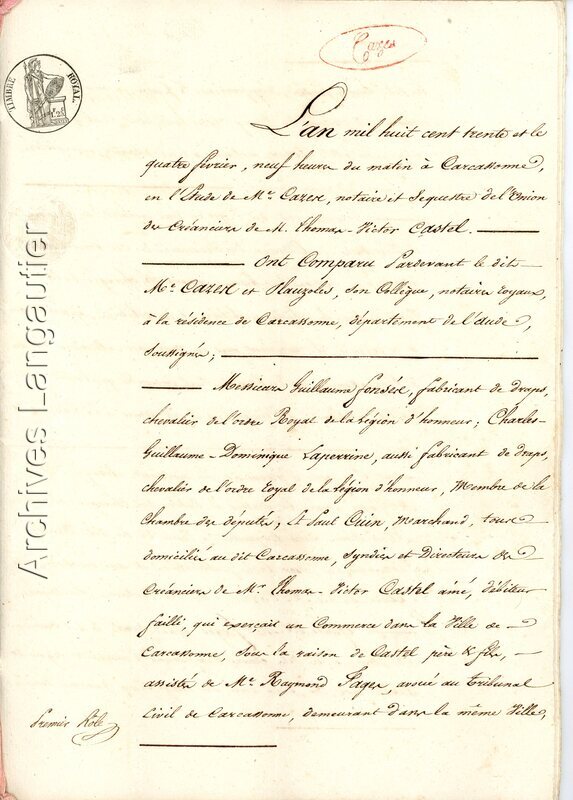 Cazes
TIMBRE ROYAL
1F. 25
L'an mil huit cent trente et le
quatre février, neuf heures du matin à Carcassonne,
en l'Etude de Me. Cazes, notaire et Sequestre de l'Union
des Créanciers de M. Thomas-Victor Castel.
Ont Comparu Pardevant le dit
Me. Cazes et Plauzoles, son Collègue, notaires royaux,
à la résidence de Carcassonne, département de l'Aude,
Soussignés;
Messieurs Guillaume Fonsés, fabricant de draps,
chevalier de l'ordre Royal de la Légion d'honneur; Charles-
Guillaume-Dominique Laperrine, aussi fabricant de draps,
chevalier de l'ordre royal de la légion d'honneur, Membre de la
Chambre des députés; Et Paul Cuin, Marchand, tous
domiciliés au dit Carcassonne, Syndics et Directeurs des
Créanciers de Mr. Thomas-Victor Castel ainé, débiteur
failli, qui exerçait un Commerce dans la Ville de
Carcassonne, Sous la raison de Castel père & fils,
assistés de Me. Raymond Sages, avoué au tribunal
Civil de Carcassonne, demeurant dans la même Ville,
Premier Rôle
Archives Langautier